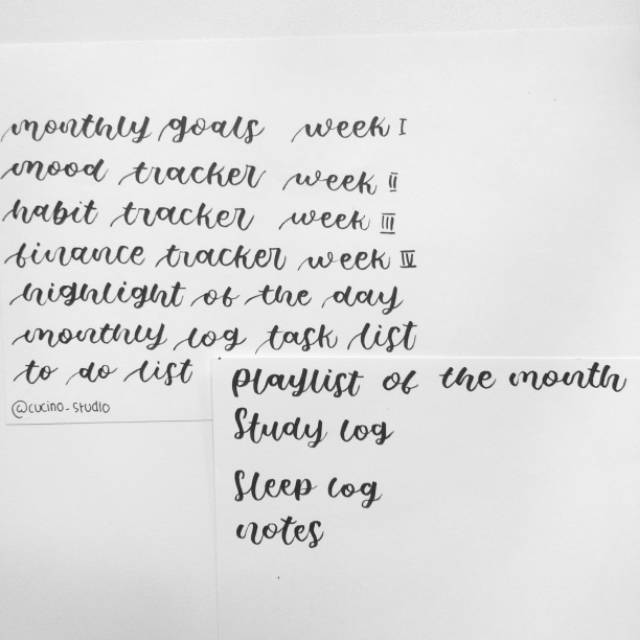 monthly goals week I
mood tracker week II
habit tracker week III
finance tracker week IV
highlight of the day
monthly log task list
to do list
@cucino_studio
Playlist of the month
Study log
Sleep log
notes